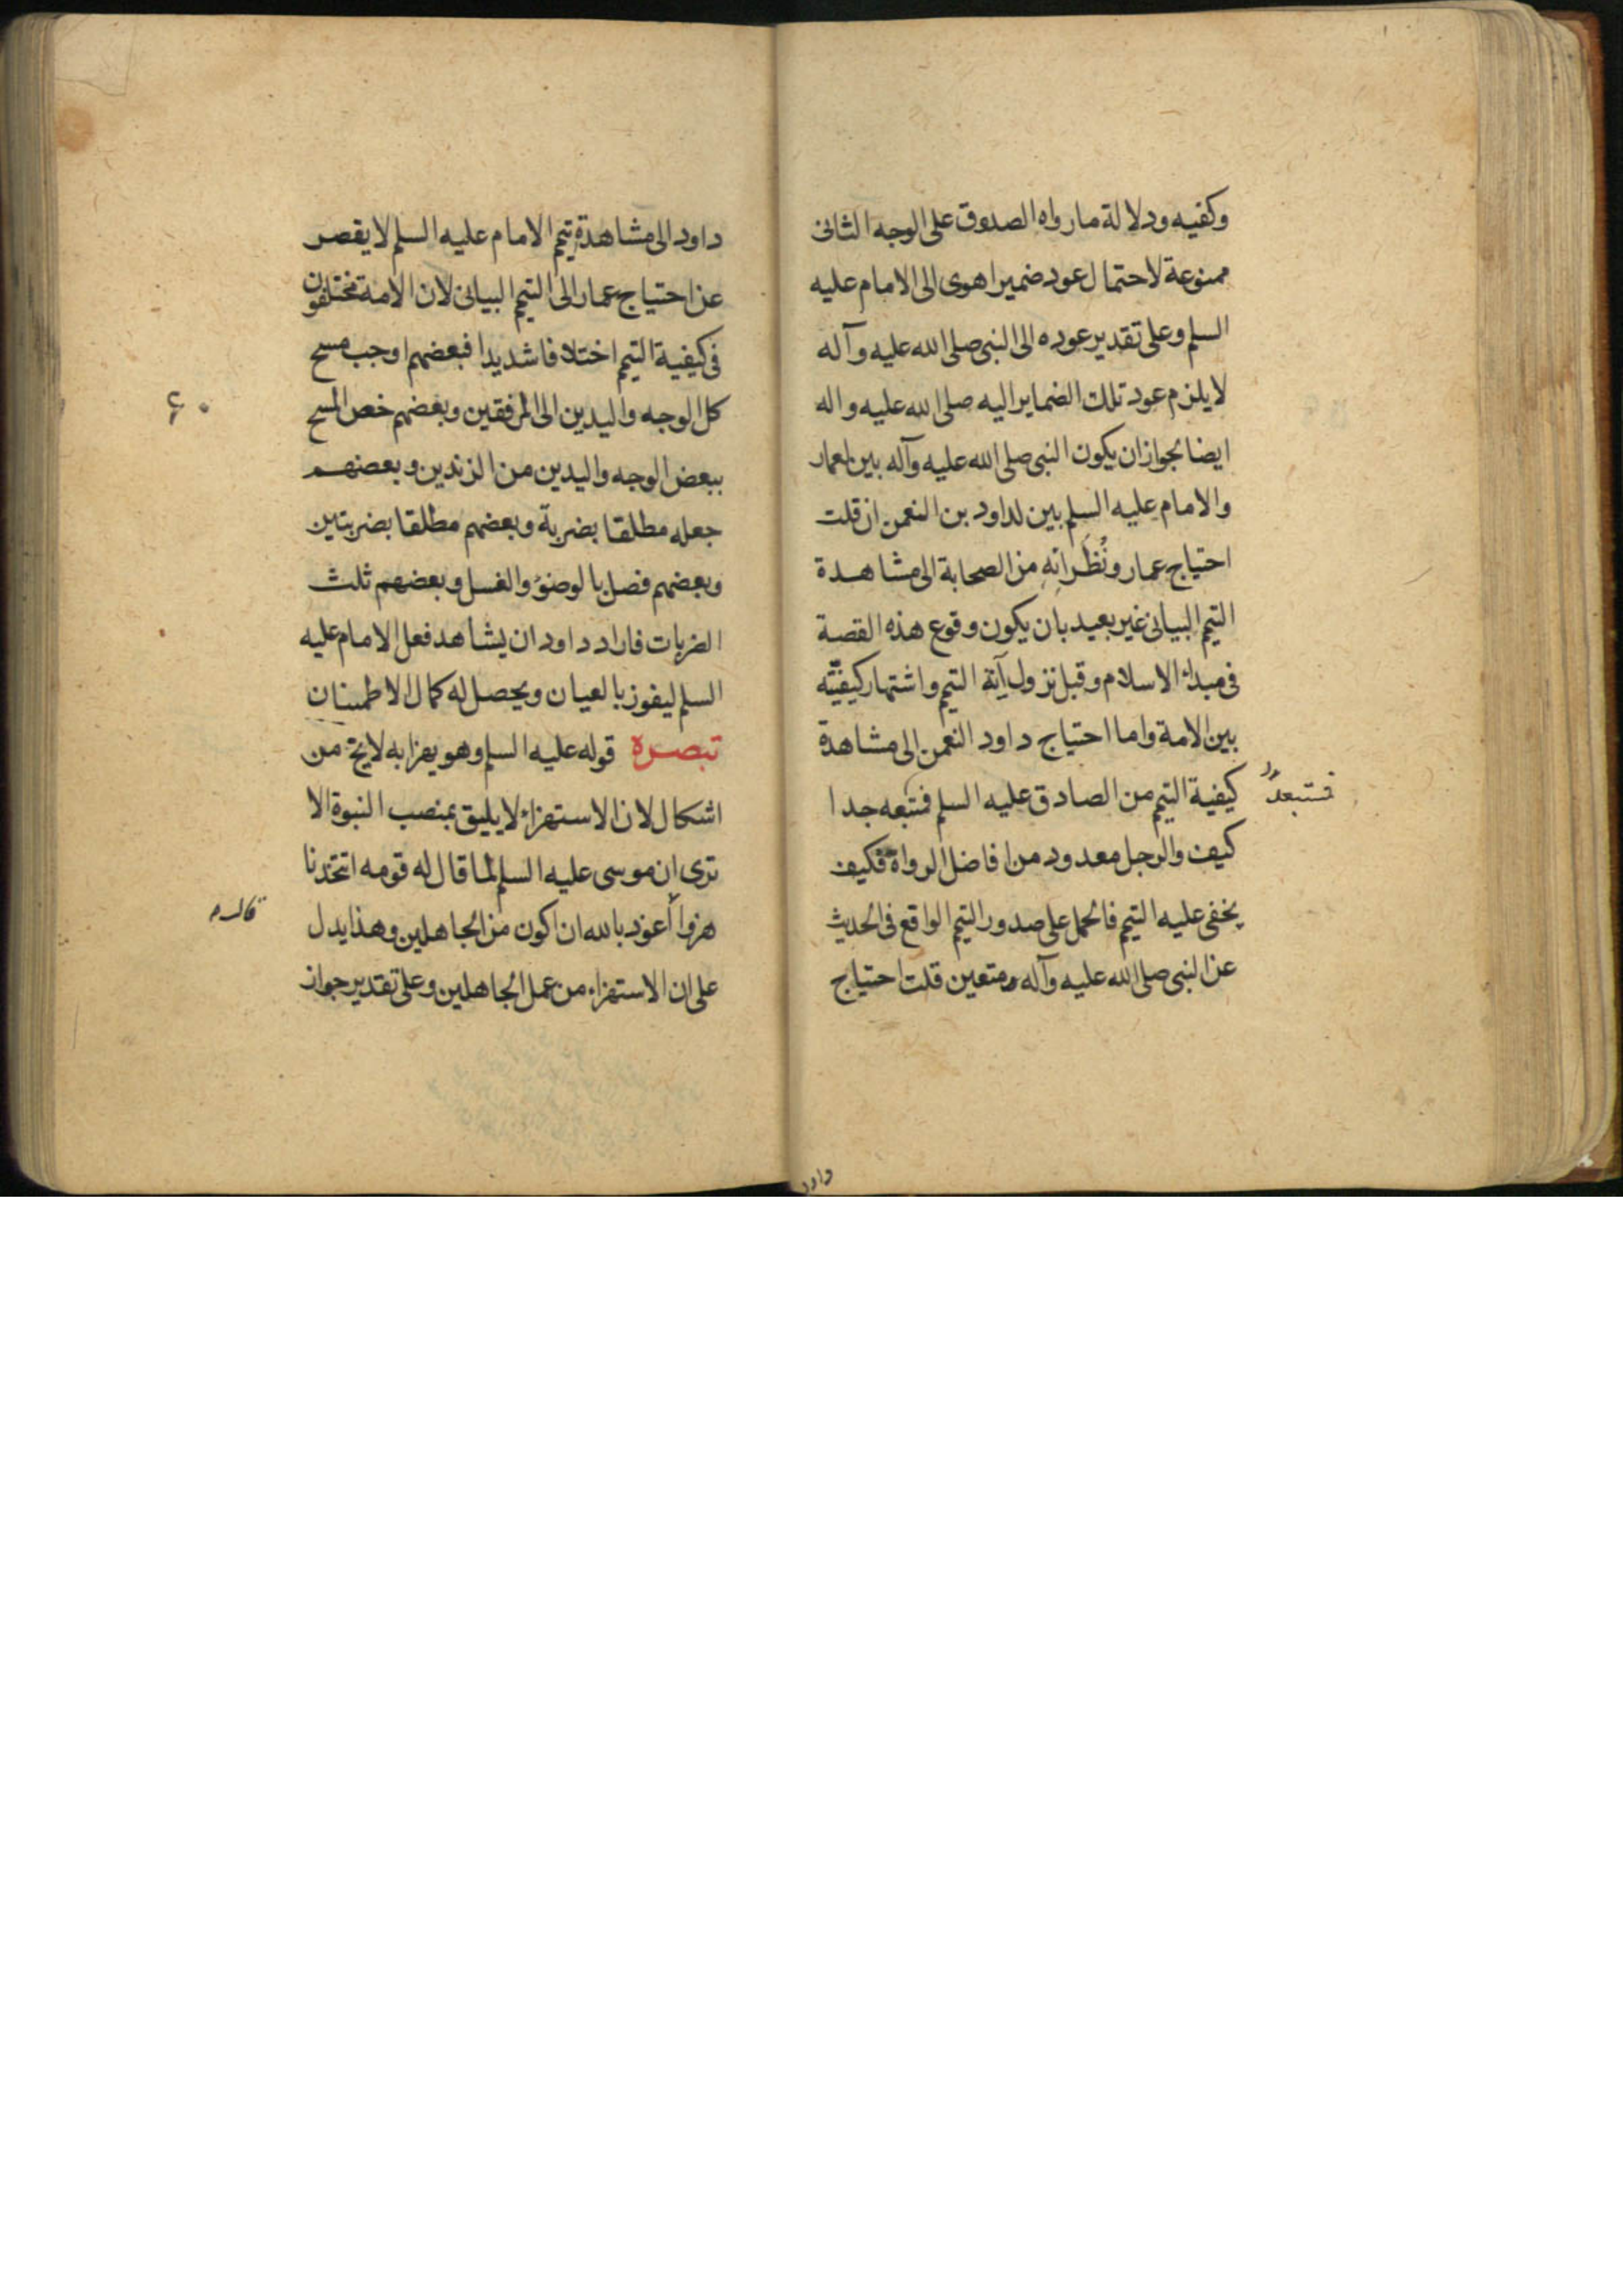 وكفيه ودلالة ما رواه الصدوق على الوجه الثانى
ممنوعة لاحتمال عود ضمير اهوى الى الامام عليه
السلم وعلى تقدير عوده الى النبى صلى الله عليه وآله
لا يلزم عود تلك الضماير اليه صلى الله عليه واله
ايضا بجواز ان يكون النبى صلى الله عليه وآله بين لعمار
والامام عليه السلم بين لداود بن النعمن ان قلت
احتياج عمار ونُظَرائِهِ من الصحابة الى مشاهدة
التيمم البيانى غير بعيد بان يكون وقوع هذه القصة
فى مبداء الاسلام وقبل نزول آية التيمم واشتهار كيفيته
بين الامة واما احتياج داود النعمن الى مشاهدة
كيفية التيمم من الصادق عليه السلم فتبعه جدا
فستبعد
كيف والرجل معدود من افاضل الرواة فكيف
يخفى عليه التيمم فالحمل على صدور التيمم الواقع فى الحديث
عن النبى صلى الله عليه وآله متعين قلت احتياج
داود
داود الى مشاهدة تيمم الامام عليه السلم لا يقصر
عن احتياج عمار الى التيمم البيانى لان الامة مختلفون
فى كيفية التيمم اختلافا شديدا فبعضهم اوجب مسح
كل الوجه واليدين الى المرفقين وبعضهم خص المسح
۶۰
ببعض الوجه واليدين من الزندين وبعضهم
جعله مطلقا بضربة وبعضهم مطلقا بضربتين
وبعضهم فصل بالوضوء والغسل وبعضهم ثلث
الضربات فاراد داود ان يشاهد فعل الامام عليه
السلم ليفوز بالعيان ويحصل له كمال الاطمينان
تبصره قوله عليه السلم وهو يهزا به لايخ من
اشكال لان الاستهزاء لا يليق بمنصب النبوة الا
ترى ان موسى عليه السلم لما قال له قومه اتتخذنا
هزوا أعوذ بالله ان اكون من الجاهلين وهذا يدل
على ان الاستهزاء من عمل الجاهلين وعلى تقدير جواز